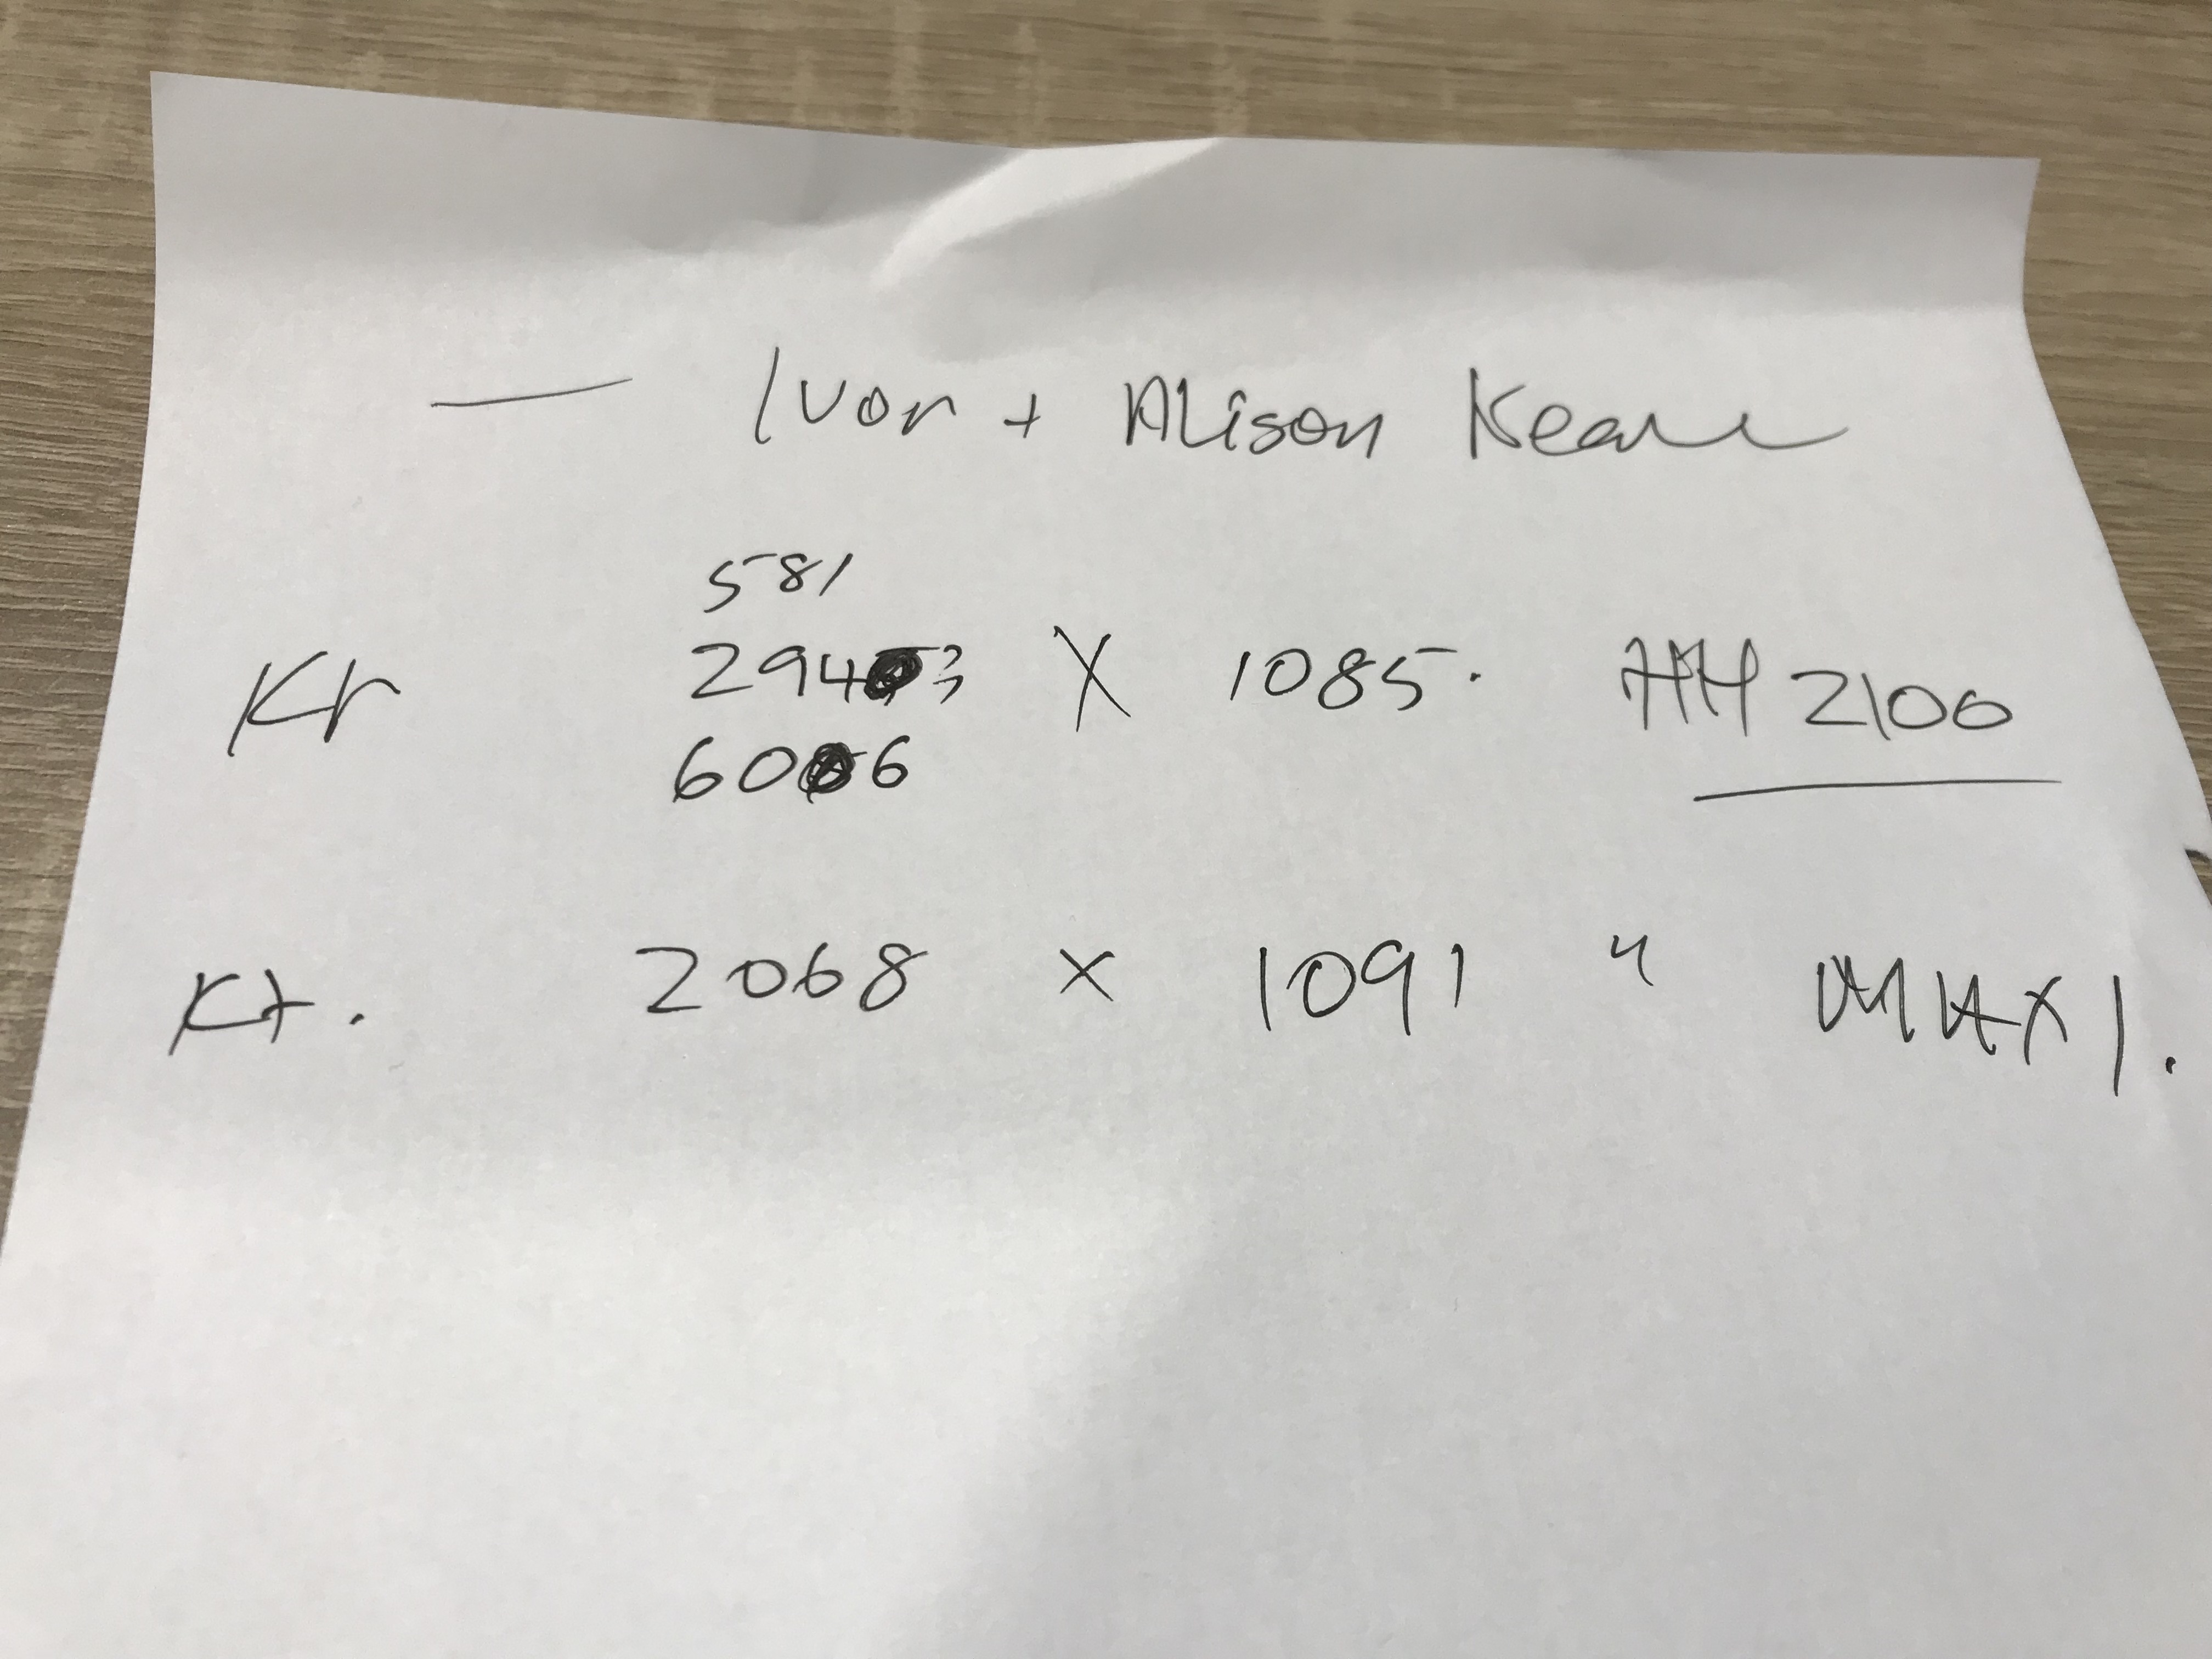 — Ivor + Alison Keane
581
Kr 2943 X 1085. HH 2100
606
Kt. 2068 x 1091 " MAX 1.